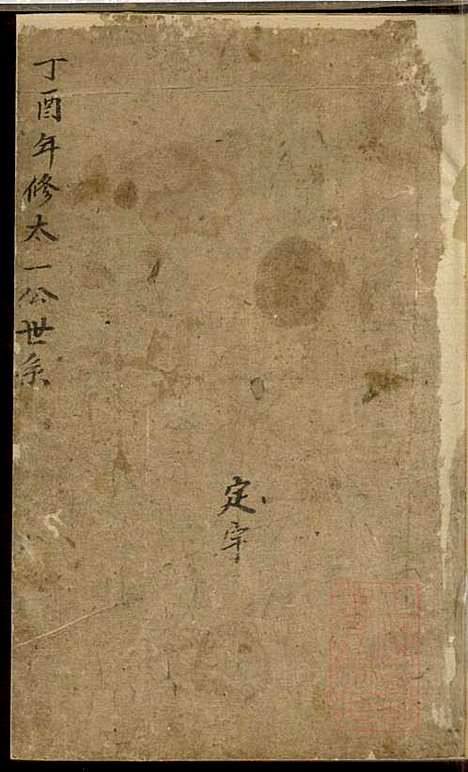 丁酉年修太一公世系
定字